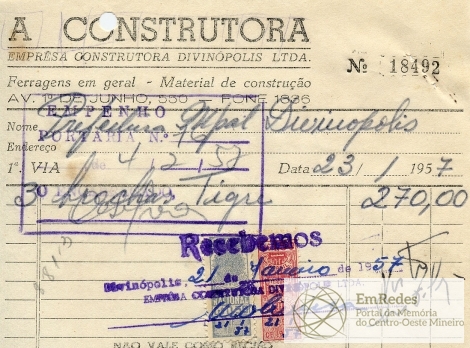 A CONSTRUTORA
EMPRÊSA CONSTRUTORA DIVINÓPOLIS LTDA.
Nº 18492
Ferragens em geral - Material de construção
AV. 1º DE JUNHO, 550 - FONE 1836
EMPENHO
Nome Prefeitura Mpal Divinopolis
PORTARIA N.º
Endereço
1ª. VIA 4/2/57 Data 23/1/1957
3 brochas Tigre 270,00
Recebemos
Divinópolis, 21 de Janeiro de 1957
EMPRÊSA CONSTRUTORA DIVINÓPOLIS LTDA.
EmRedes
Portal da Memória
do Centro-Oeste Mineiro
NÃO VALE COMO RECIBO